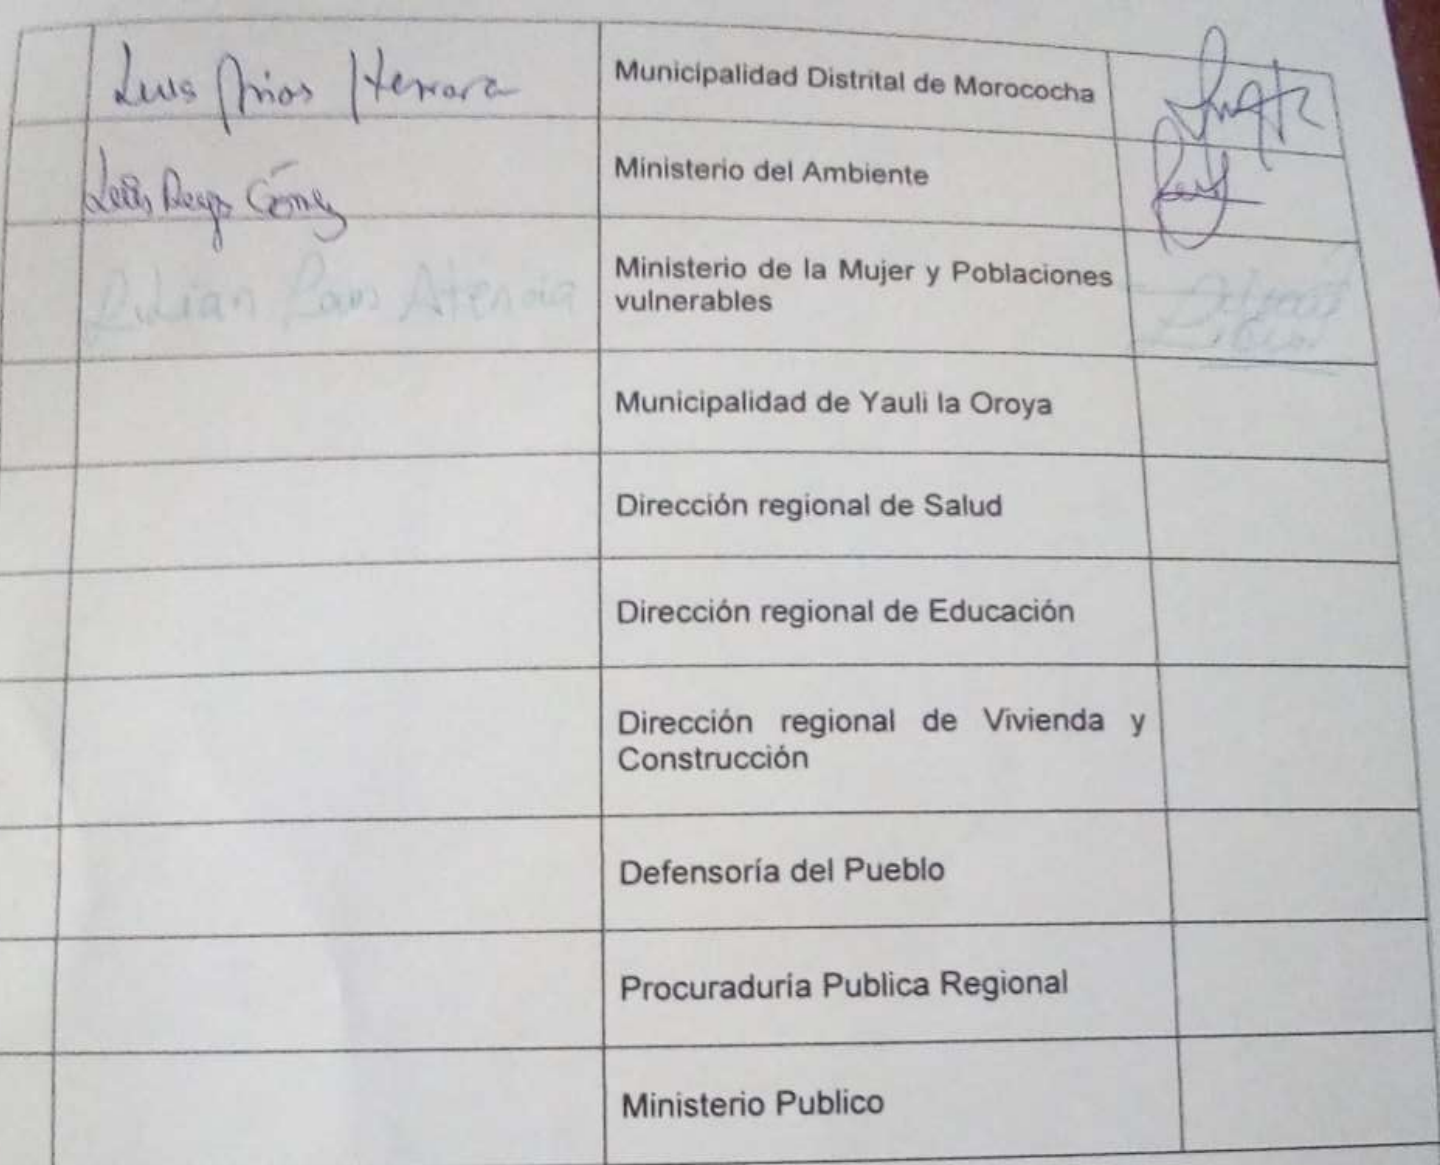 Luis Arias Herrera
Municipalidad Distrital de Morococha
Luis Gómez
Ministerio del Ambiente
Lilian Atencia
Ministerio de la Mujer y Poblaciones
vulnerables
Municipalidad de Yauli la Oroya
Dirección regional de Salud
Dirección regional de Educación
Dirección regional de Vivienda y
Construcción
Defensoría del Pueblo
Procuraduría Publica Regional
Ministerio Publico